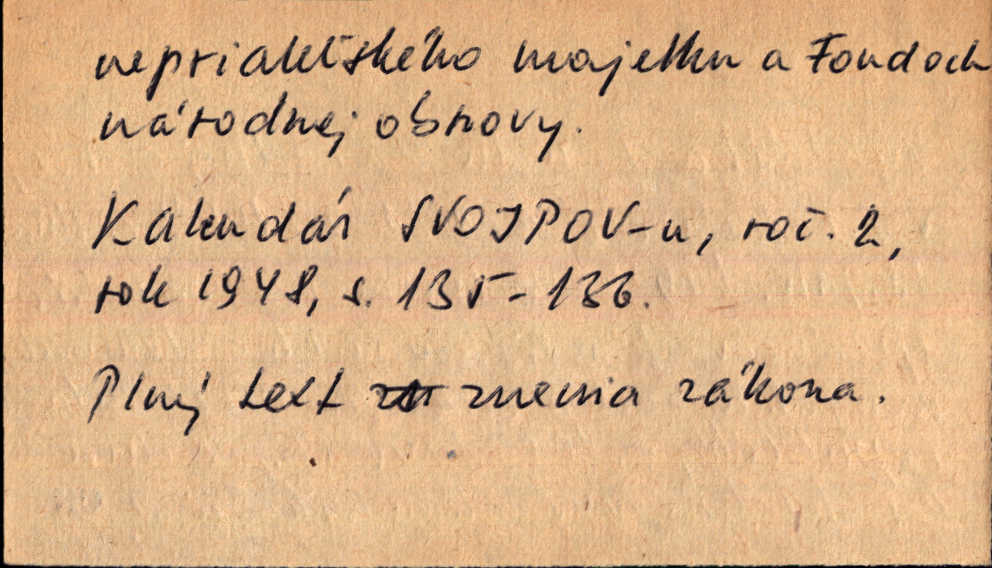 nepriateľského majetku a Fondoch
národnej obnovy.
Kalendár SVOJPOV-u, roč. 2,
rok 1948, s. 135-136.
Plný text znenia zákona.